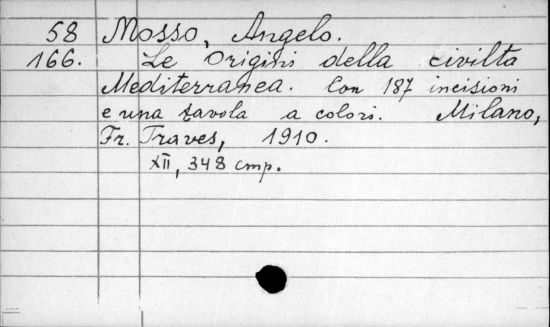 58 Mosso, Angelo.
166. Le Origini della civilta
Mediterranea. Con 187 incisioni
e una tavola a colori. Milano,
Fr. Traves, 1910.
XII, 348 стр.